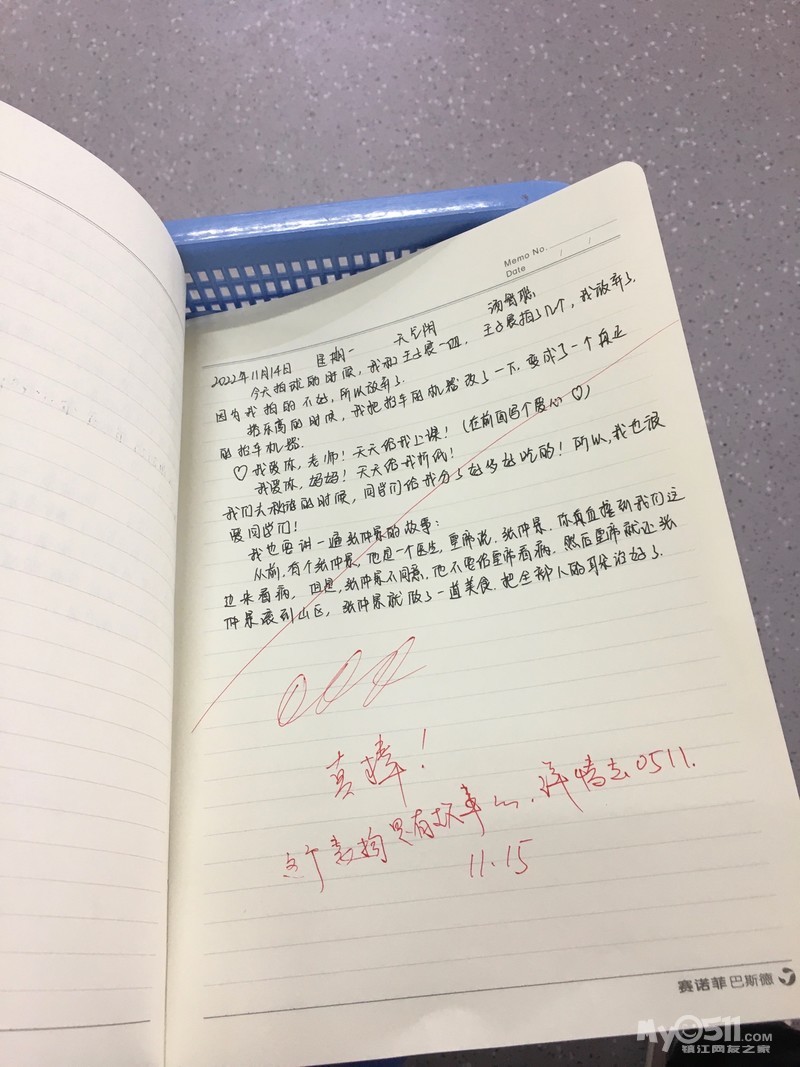 Memo No.
Date / /
2022年11月14日 星期一 天气阴
今天拍球的时候,我和王子宸一组,王子宸拍了几个,我放弃了.
因为我拍的不好,所以放弃了.
搭乐高的时候,我把拍车的机器改了一下,变成了一个真正
的拍车机器.
♡我爱你,老师!天天给我上课!(在前面写个爱心♡)
我爱你,妈妈!天天给我折纸!
我们去秋游的时候,同学们给我分了好多好吃的!所以,我也很
爱同学们!
我也要讲一遍张仲景的故事:
从前,有个张仲景,他是一个医生,皇帝说:张仲景,你真应搬到我们这
边来看病,但是,张仲景不同意,他不要给皇帝看病.然后皇帝就让张
仲景滚到山区,张仲景就做了一道美食,把全部人的耳朵治好了.
真棒!
这个 只有 详情去0511.
11.15
赛诺菲巴斯德
My0511.COM
镇江网友之家